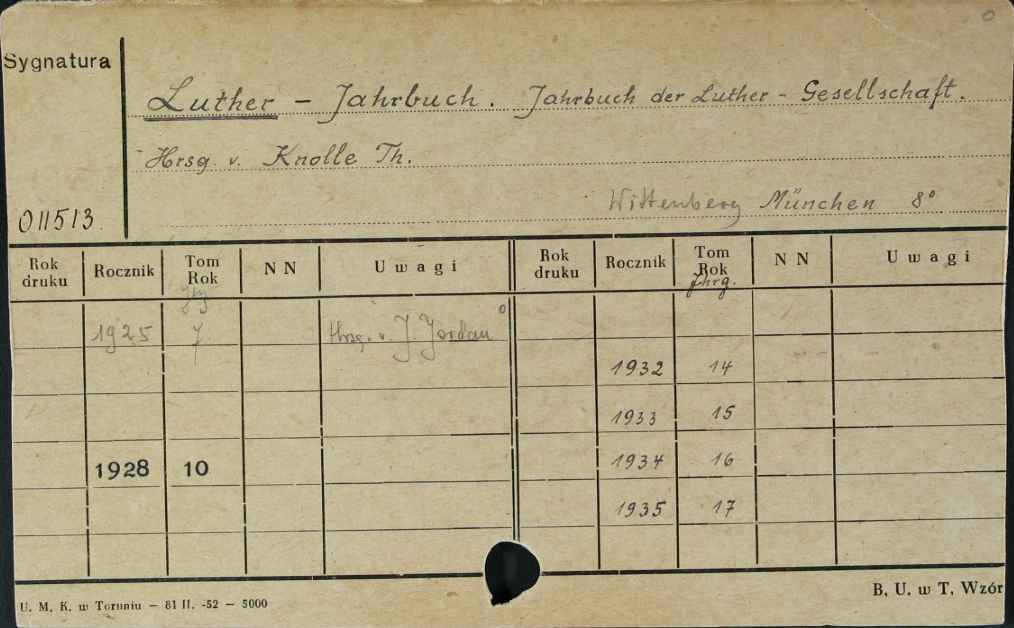 Sygnatura
Luther - Jahrbuch. Jahrbuch der Luther - Gesellschaft.
Hrsg. v. Knolle Th.
Wittenberg München 8°
011513.
Rok druku Rocznik Tom Rok NN Uwagi Rok druku Rocznik Tom Rok NN Uwagi
Jhrg.
1925 7. Hrsg. v. J. Jordan
1932 14
1933 15
1928 10 1934 16
1935 17
U. M. K. w Toruniu — 81 II. -52 — 5000
B. U. w T. Wzór